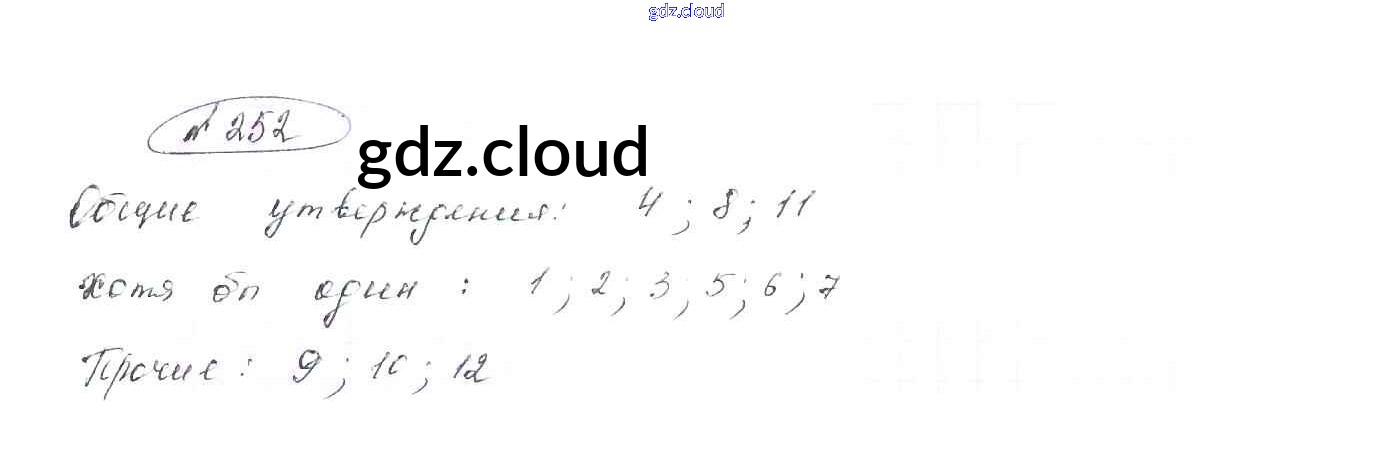 gdz.cloud
№ 252
gdz.cloud
Общие утверждения: 4; 8; 11
хотя бы один: 1; 2; 3; 5; 6; 7
Прочие: 9; 10; 12